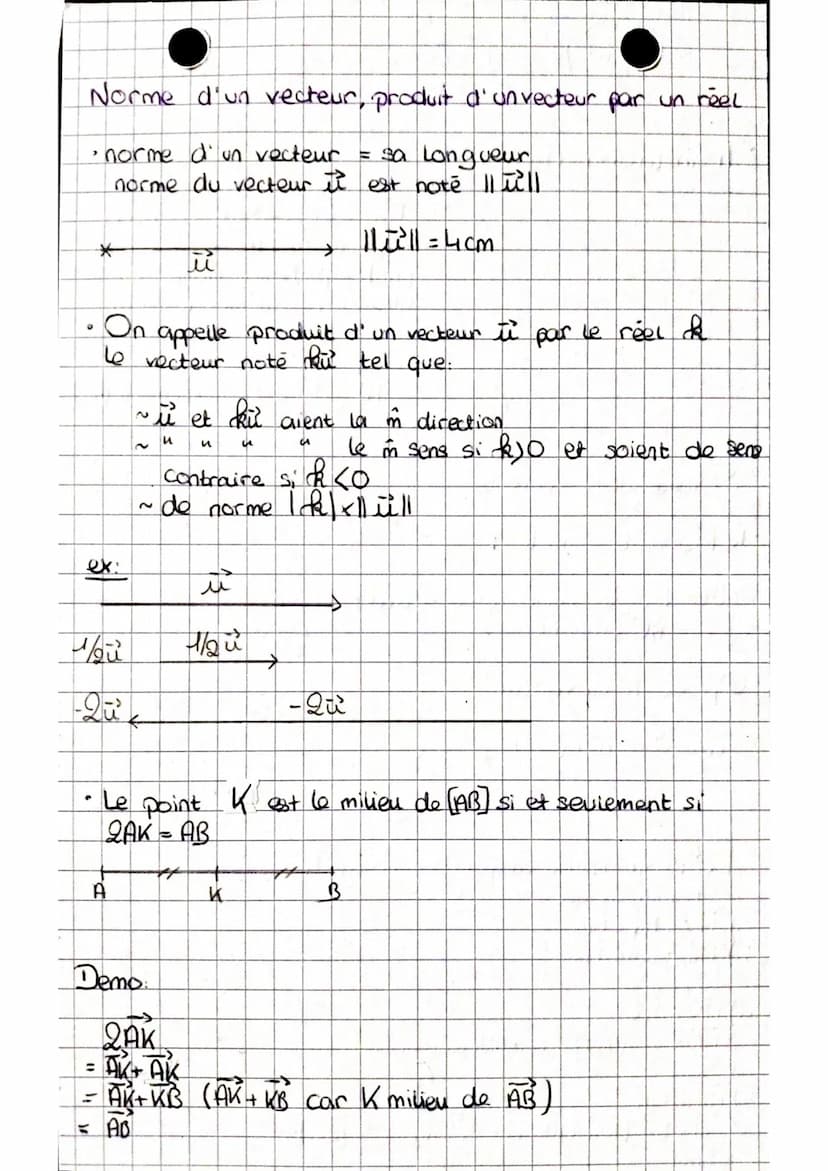 Norme d'un vecteur, produit d'un vecteur par un réel
· norme d'un vecteur = sa longueur
norme du vecteur u⃗ est noté ||u⃗||
u⃗
||u⃗|| = 4cm
· On appelle produit d'un vecteur u⃗ par le réel k
le vecteur noté ku⃗ tel que:
~ u⃗ et ku⃗ aient la m̂ direction
~ " " " " le m̂ sens si k>0 et soient de sens
contraire si k<0
~ de norme |k|×||u⃗||
ex:
u⃗
1/2u⃗ 1/2u⃗
-2u⃗ -2u⃗
· Le point K est le milieu de [AB] si et seulement si
2AK = AB
A K B
Demo:
2AK⃗
= AK⃗ + AK⃗
= AK⃗ + KB⃗ (AK⃗ + KB⃗ car K milieu de AB⃗)
= AB⃗